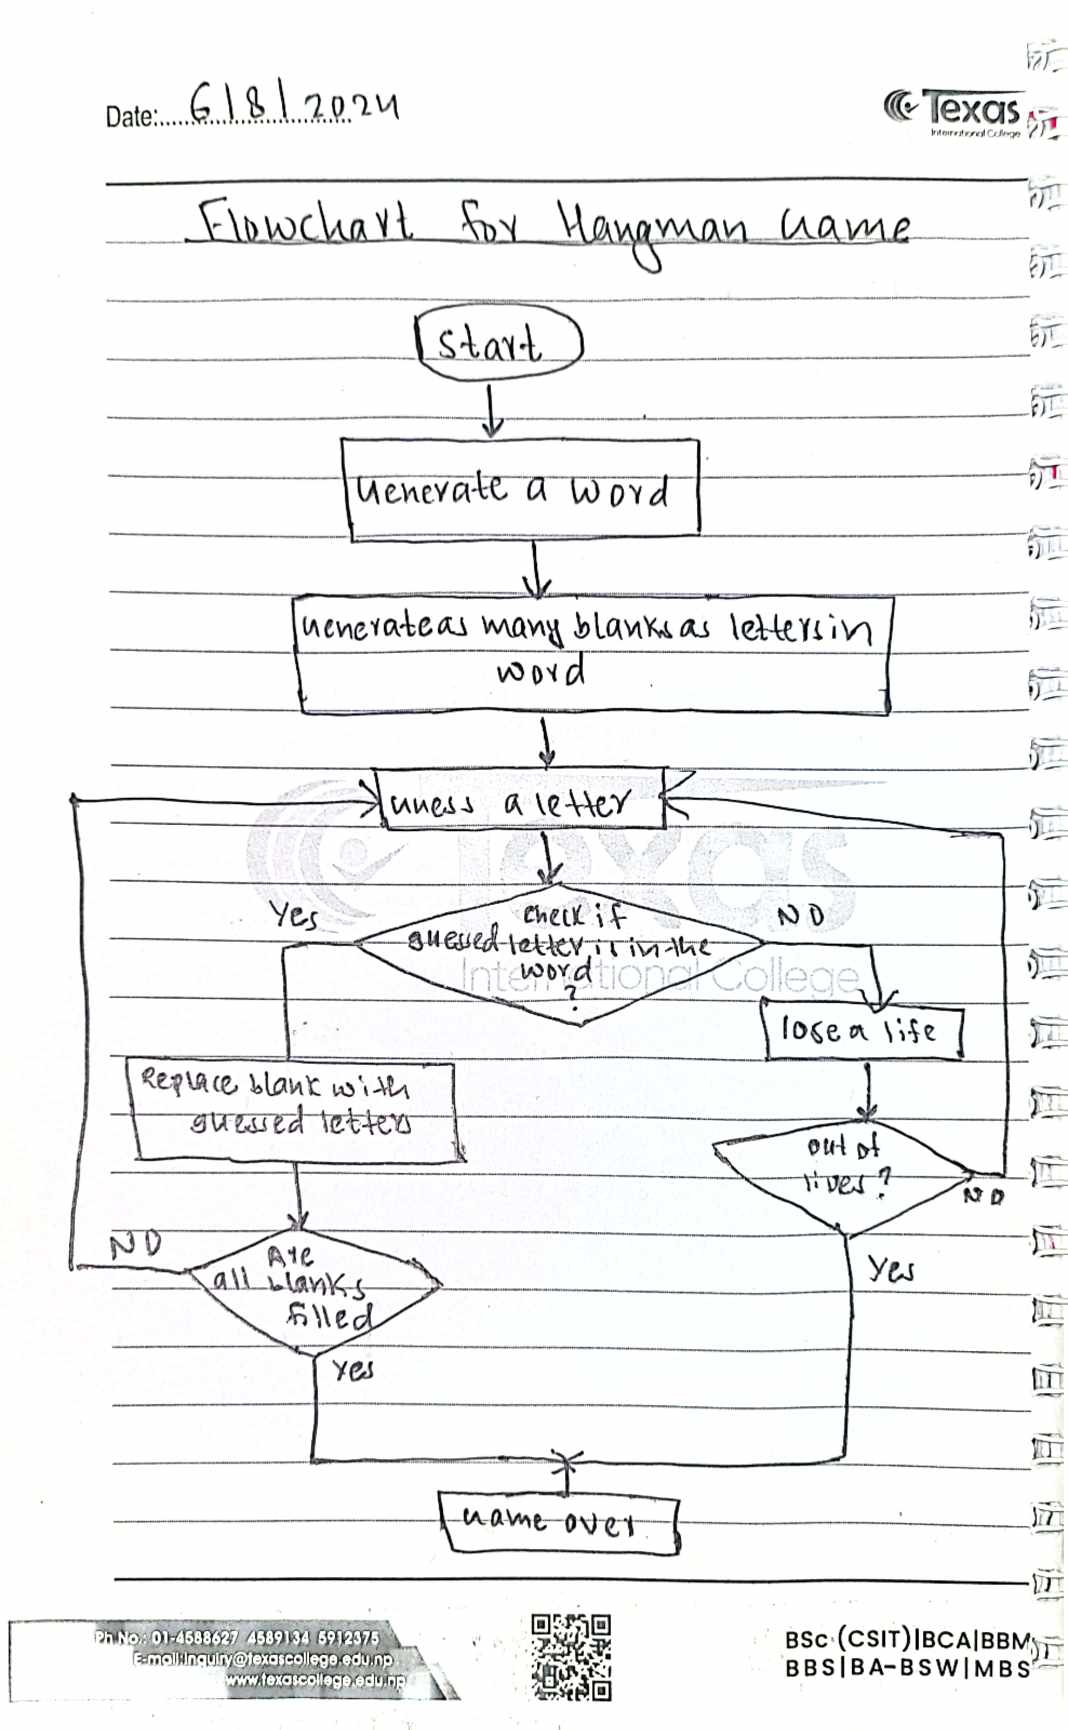 Date:.....6/8/2024
Texas
International College
Flowchart for Hangman Game
Start
Generate a word
Generate as many blanks as letters in
word
Guess a letter
Yes
Check if
guessed letter is in the
word
?
NO
Texas
International College
lose a life
Replace blank with
guessed letters
out of
lives?
NO
NO
Are
all blanks
filled
Yes
Yes
Game over
Ph No.: 01-4588627 4589134 5912375
E-mail:inquiry@texascollege.edu.np
www.texascollege.edu.np
BSc (CSIT)|BCA|BBM
BBS|BA-BSW|MBS